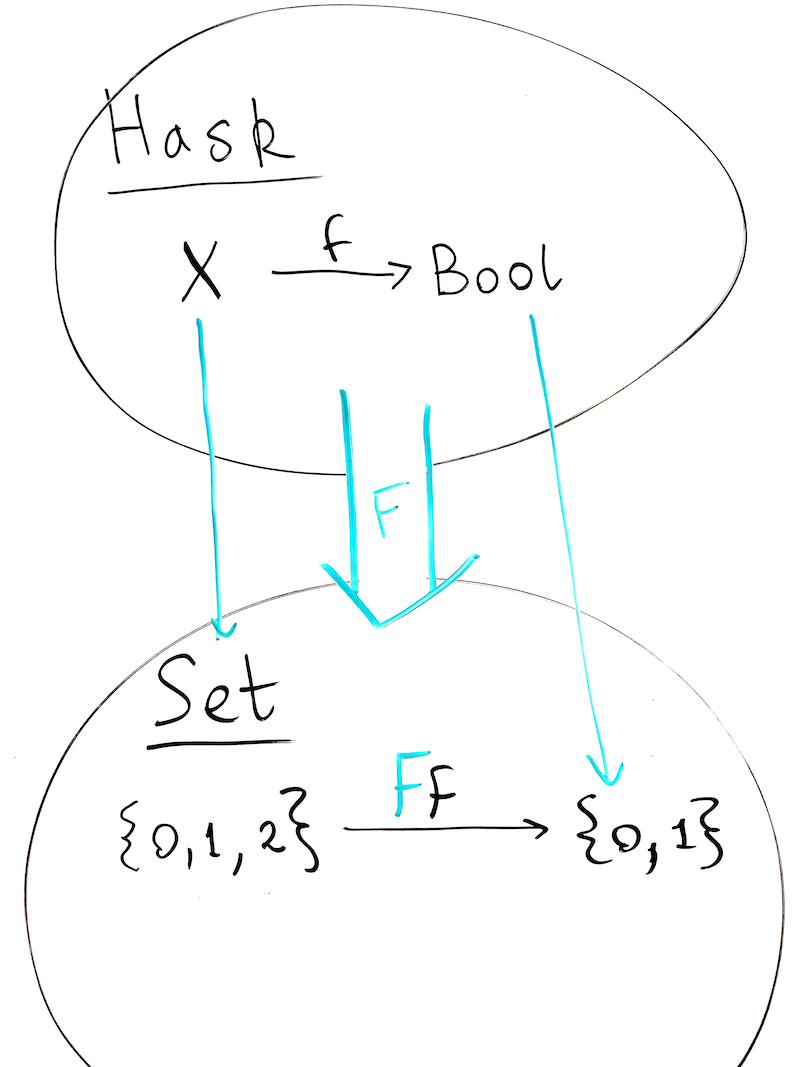 Hask
X f Bool
F
Set
Ff
{0,1,2} {0,1}